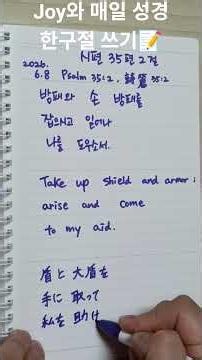 Joy와 매일 성경
한구절 쓰기📝
시편 35편 2절
2026.
6.8 Psalm 35:2, 詩篇 35:2
방패와 손 방패를
잡으시고 일어나
나를 도우소서.
Take up shield and armor;
arise and come
to my aid.
盾と大盾を
手に取って
私を助け